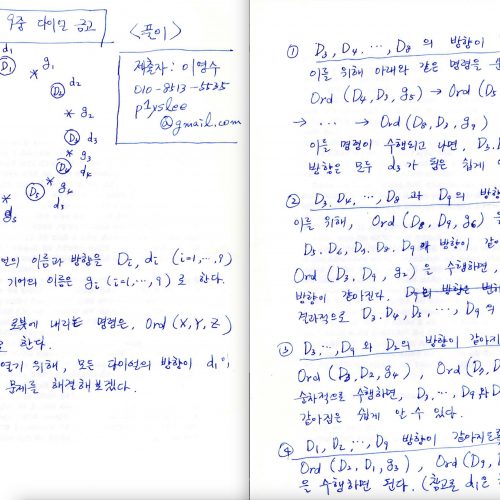 9중 다이얼 금고
<풀이>
제출자: 이영수
010-8513-5535
p1yslee
@gmail.com
d₁
D₁
g₁
d₂
D₂
g₂
D₃ d₃
g₃
d₄
g₄
D₅
d₅
g₅
의 이름과 방향은 Dᵢ, dᵢ (i=1,…,9)
기어의 이름은 gᵢ (i=1,…,9) 로 한다.
로봇에 내리는 명령은, Ord(X,Y,Z)
로 한다.
열기 위해, 모든 다이얼의 방향이 d₁이
문제를 해결해보겠다.
① D₃, D₄, …, D₈ 의 방향이
이를 위해 아래와 같은 명령을
Ord (D₄, D₃, g₅) → Ord (D₅
→ … → Ord (D₈, D₃, g₉)
이들 명령이 수행되고 나면, D₃, D
방향은 모두 d₃가 됨은 쉽게
② D₃, D₄, …, D₈ 과 D₉의 방향
이를 위해, Ord (D₈, D₉, g₆) 을
D₅, D₆, D₇, D₈, D₉의 방향이 같아
Ord (D₃, D₉, g₂) 을 수행하면,
방향이 같아진다.
결과적으로 D₃, D₄, D₅, …, D₉ 의
③ D₃, …, D₉ 와 D₂의 방향이 같아지
Ord (D₃, D₂, g₄), Ord (D₃, D
순차적으로 수행하면, D₃, …, D₉와 D
같아짐은 쉽게 안 수 있다.
④ D₁, D₂, …, D₉ 방향이 같아지도록
Ord (D₂, D₁, g₃), Ord (D₉, D
은 수행하면 된다. (참고로 d₁은